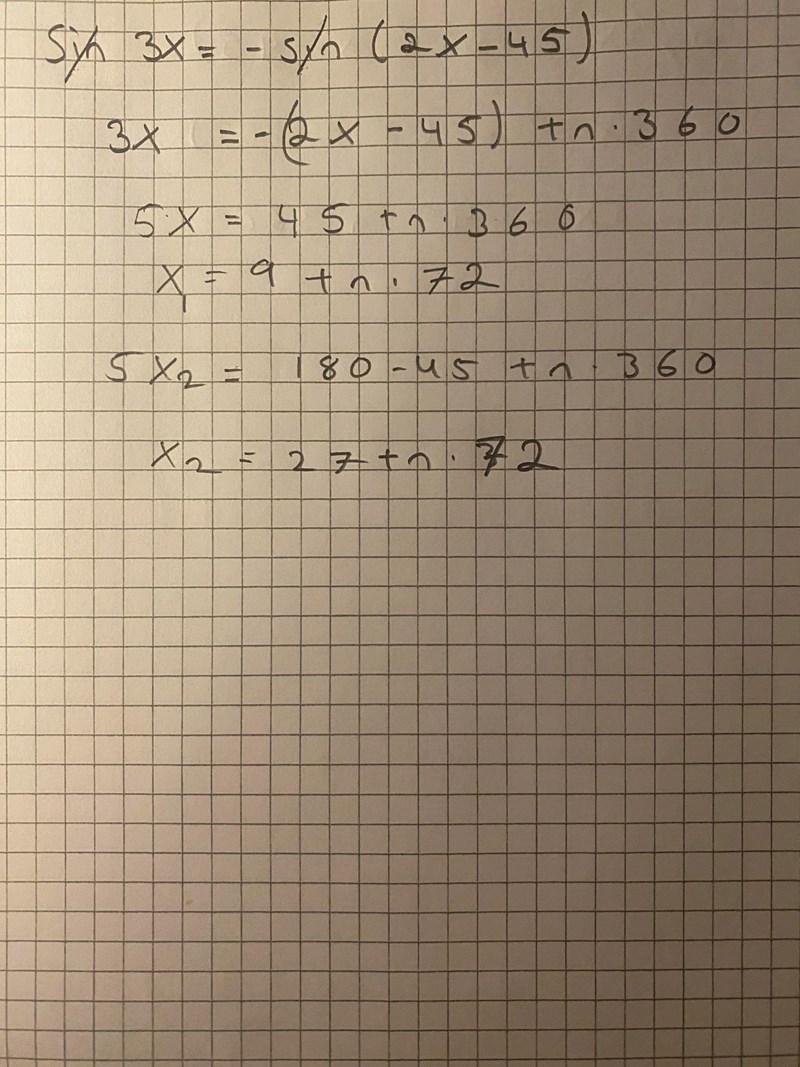 Sin 3x = - sin (2x - 45)
3x = -(2x - 45) + n · 360
5x = 45 + n · 360
x₁ = 9 + n · 72
5x₂ = 180 - 45 + n · 360
x₂ = 27 + n · 72